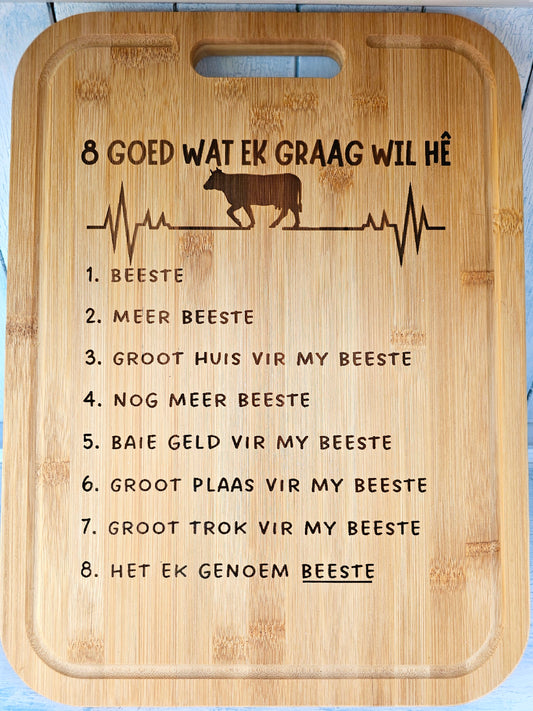 8 GOED WAT EK GRAAG WIL HÊ
1. BEESTE
2. MEER BEESTE
3. GROOT HUIS VIR MY BEESTE
4. NOG MEER BEESTE
5. BAIE GELD VIR MY BEESTE
6. GROOT PLAAS VIR MY BEESTE
7. GROOT TROK VIR MY BEESTE
8. HET EK GENOEM BEESTE